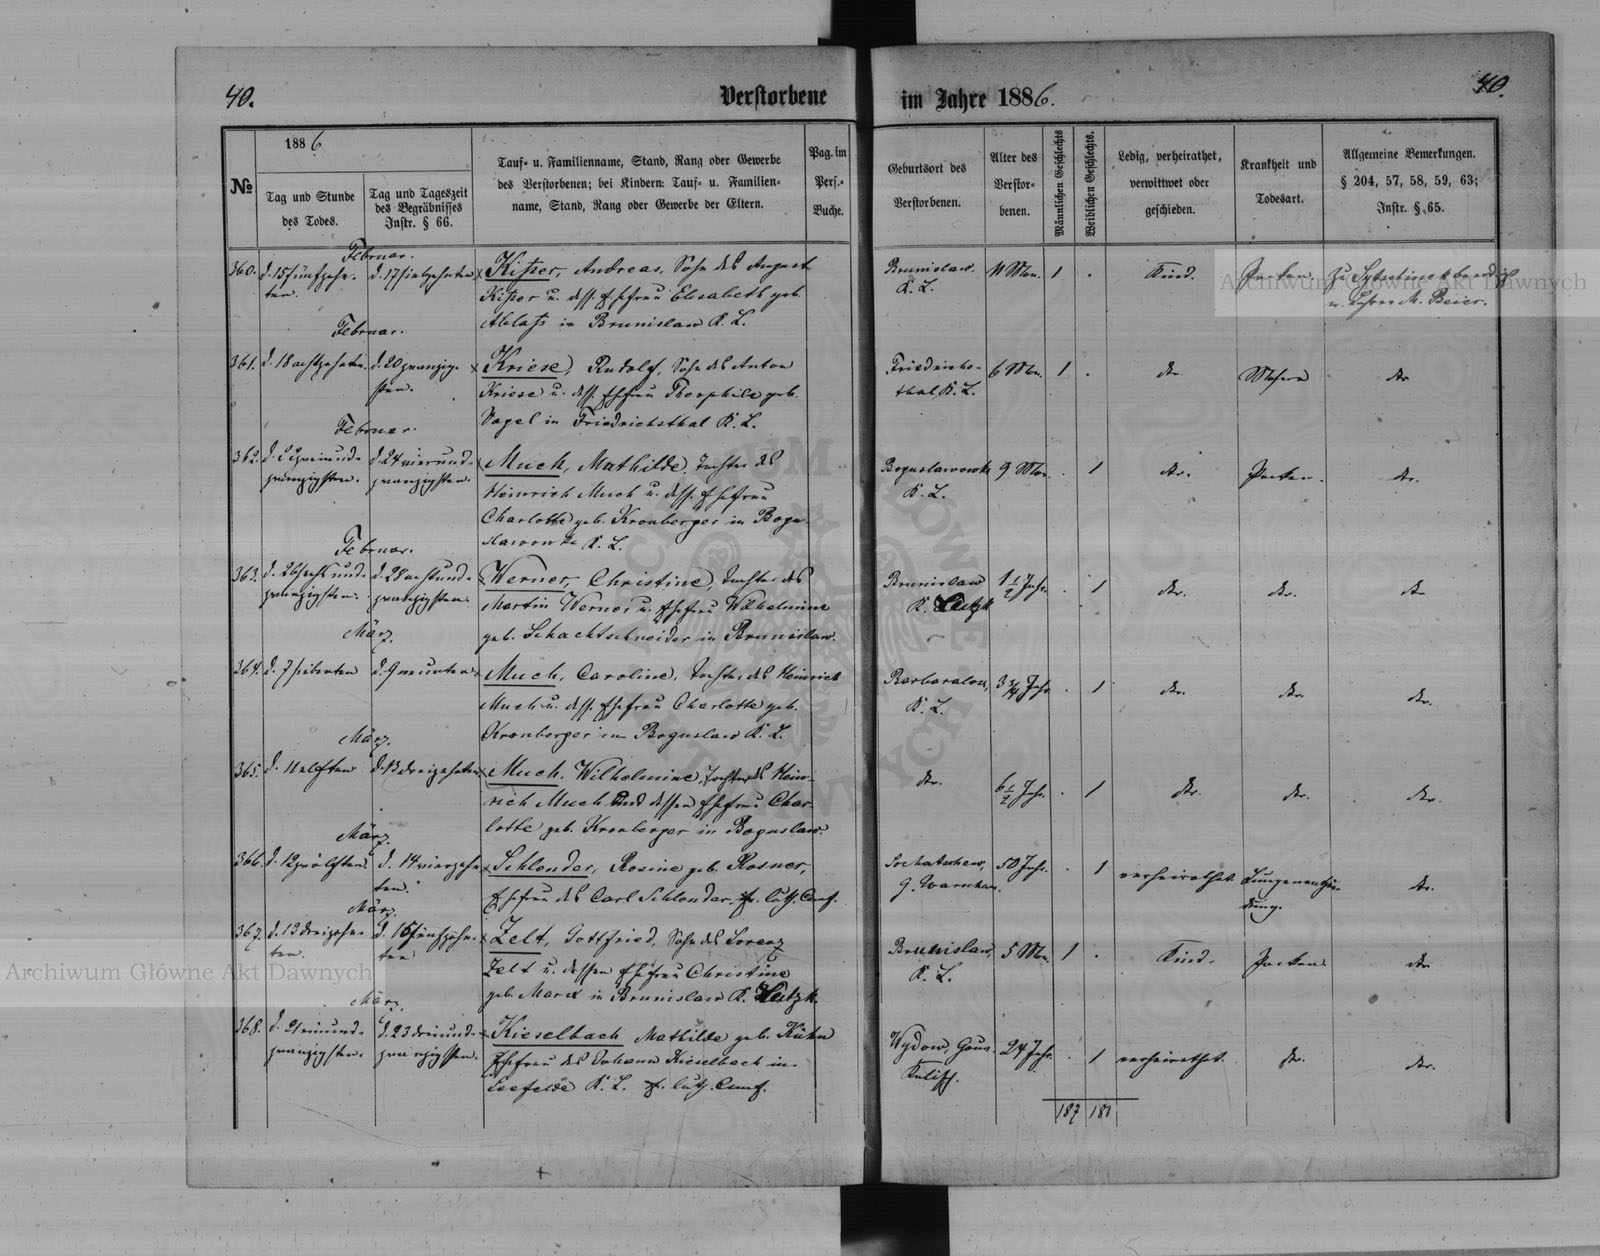 40.
Verstorbene
im Jahre 1886.
40.
№
1886
Tag und Stunde
des Todes.
Tag und Tageszeit
des Begräbnisses
Instr. § 66.
Tauf- u. Familienname, Stand, Rang oder Gewerbe
des Verstorbenen; bei Kindern: Tauf- u. Familien-
name, Stand, Rang oder Gewerbe der Eltern.
Pag. im
Pers.-
Buche.
Geburtsort des
Verstorbenen.
Alter des
Verstor-
benen.
Männlichen Geschlechts
Weiblichen Geschlechts.
Ledig, verheirathet,
verwittwet oder
geschieden.
Krankheit und
Todesart.
Allgemeine Bemerkungen.
§ 204, 57, 58, 59, 63;
Instr. § 65.
Februar.
360. d. 15 fünfzehn-
ten.
d. 17 siebzehnten
Andreas, Sohn des August
u. dess. Ehefrau Elisabeth geb.
in Brunislaw K. L.
Brunislaw
K. L.
11 Mon. 1 . Kind. Pocken.
Beier.
Februar.
361. d. 18 achtzehnten. d. 20 zwanzig-
sten.
Kriese, Rudolf, Sohn des Anton
Kriese u. dess. Ehefrau Theophile geb.
Vogel in Friedrichsthal K. L.
Friedrichs-
thal, K. L.
6 Mon. 1 . do. Masern do.
Februar.
362. d. 22 zweiund-
zwanzigsten.
d. 24 vierund-
zwanzigsten.
Much, Mathilde, Tochter des
Heinrich Much u. dess. Ehefrau
Charlotte geb. Kronberger in Bogu-
K. L.
K. L.
9 Mon. . 1 do. Pocken. do.
Februar.
363. d. 26 sechsund-
zwanzigsten.
d. 28 achtund-
zwanzigsten.
Werner, Christine, Tochter des
Martin Werner u. Ehefrau Wilhelmine
geb. Schachtschneider in Brunislaw.
Brunislaw
K.
1 1/2 Jahr. . 1 do. do. do.
März.
364. d. 7 siebenten d. 9 neunten
Much, Caroline, Tochter des Heinrich
Much u. dess. Ehefrau Charlotte geb.
Kronberger in Boguslaw K. L.
K. L.
3 3/4 Jahr . 1 do. do. do.
März.
365. d. 11 elften d. 13 dreizehnten
Much, Wilhelmine, Tochter des Hein-
rich Much und dessen Ehefrau Char-
lotte geb. Kronberger in Boguslaw.
do. 6 1/2 Jahr. . 1 do. do. do.
März.
366. d. 12 zwölften d. 14 vierzehn
ten.
Schlender, Rosine geb. Rosner,
Ehefrau des Carl Schlender,
50 Jahr. . 1 verheirathet Lungenentzün-
dung.
do.
März.
367. d. 13 dreizehn-
ten.
d. 15 fünfzehn-
ten
Zelt, Gottfried, Sohn des Lorenz
Zelt u. dessen Ehefrau Christine
geb. in Brunislaw K.
Brunislaw,
K. L.
5 Mon. 1 . Kind. Pocken. do.
März.
368. d. 21 einund-
zwanzigsten.
d. 23 dreiund-
zwanzigsten.
Kieselbach Mathilde geb. Kühn
Ehefrau des Johann Kieselbach in
K. L.
Gouv.
Kalisch.
24 Jahr. . 1 verheirathet. do. do.
187 181
Archiwum Główne Akt Dawnych
Archiwum Główne Akt Dawnych